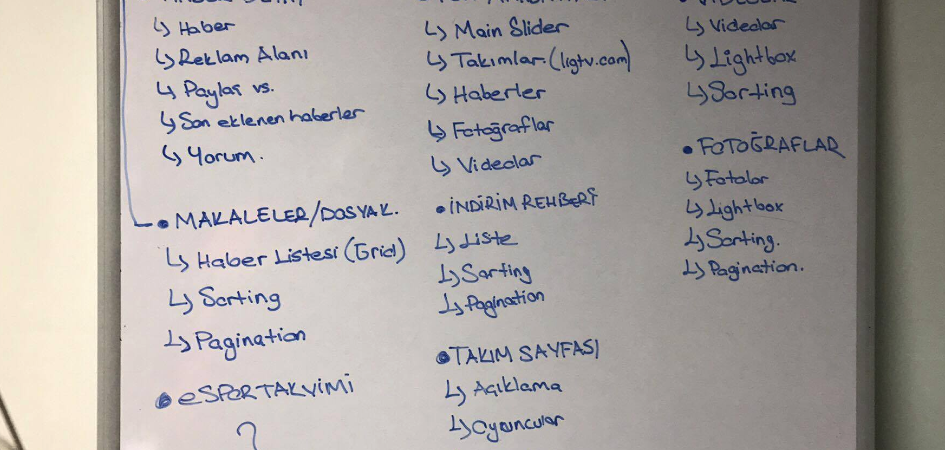 ↳ Haber
↳ Reklam Alanı
↳ Paylaş vs.
↳ Son eklenen haberler
↳ Yorum.
• MAKALELER/DOSYAK.
↳ Haber Listesi (Grid)
↳ Sorting
↳ Pagination
• eSPOR TAKVİMİ
?
↳ Main Slider
↳ Takımlar (ligtv.com)
↳ Haberler
↳ Fotoğraflar
↳ Videolar
• İNDİRİM REHBERİ
↳ Liste
↳ Sorting
↳ Pagination
• TAKIM SAYFASI
↳ Açıklama
↳ Oyuncular
↳ Videolar
↳ Lightbox
↳ Sorting
• FOTOĞRAFLAR
↳ Fotolar
↳ Lightbox
↳ Sorting.
↳ Pagination.